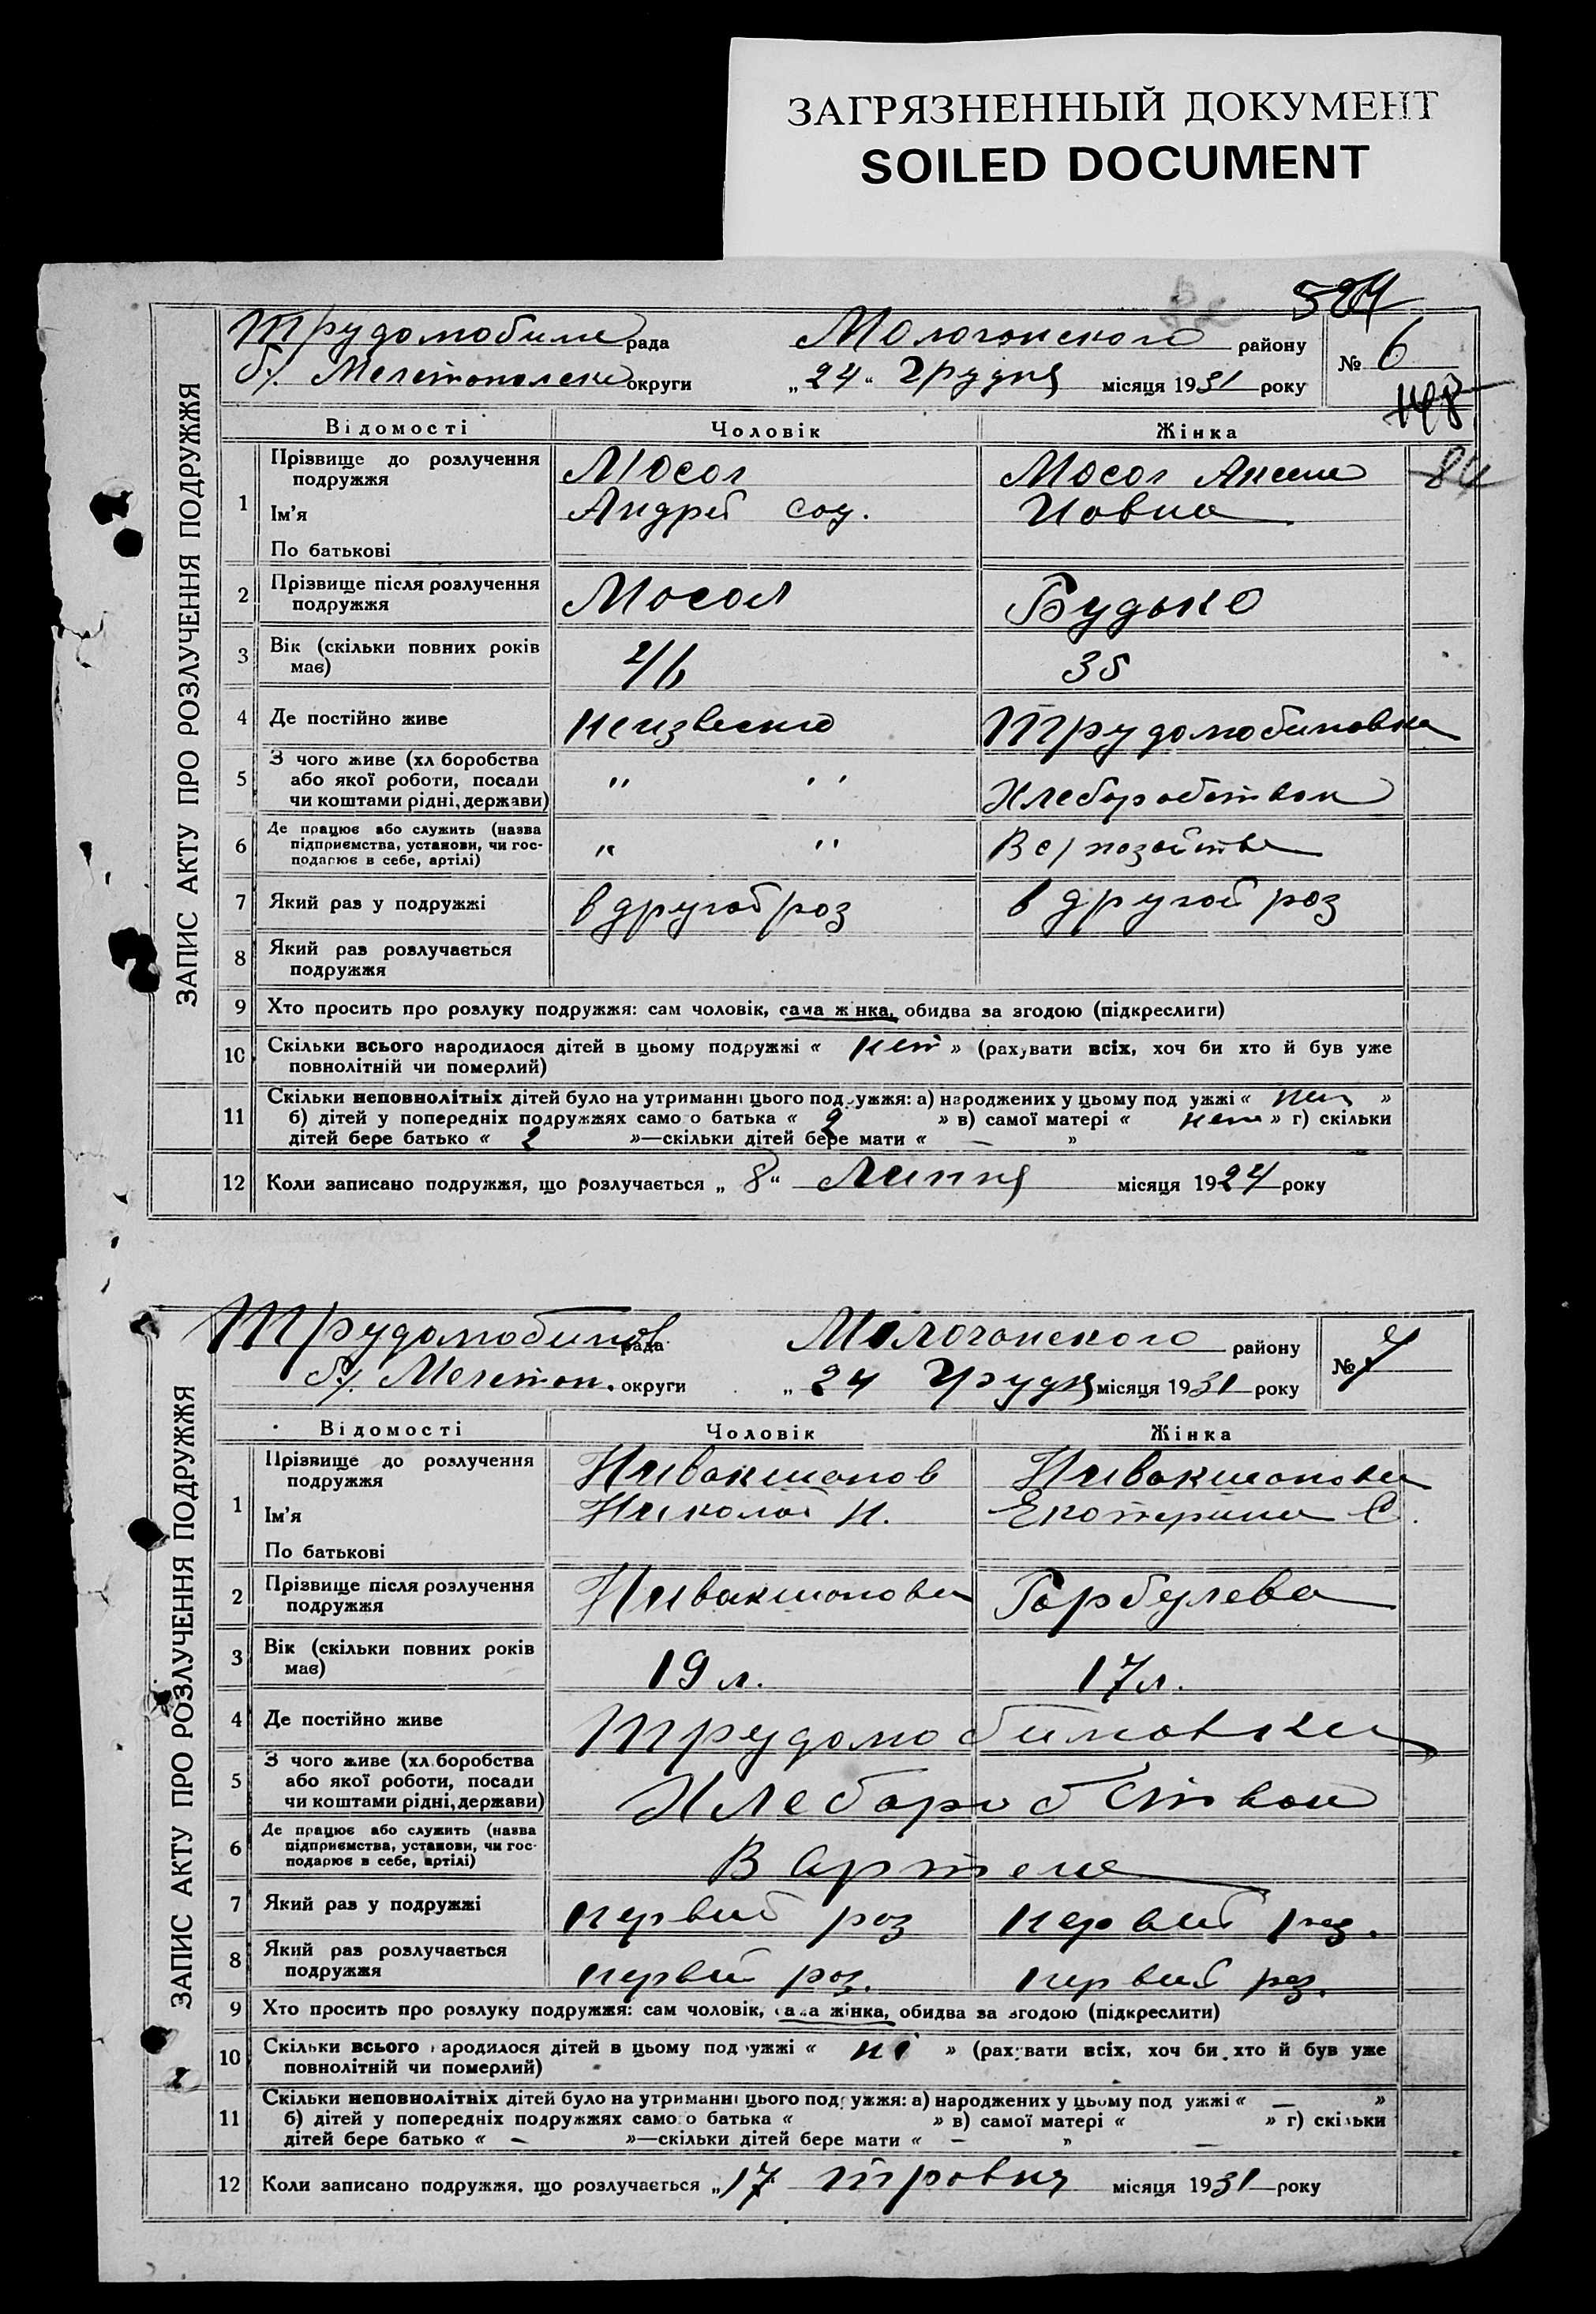 ЗАГРЯЗНЕННЫЙ ДОКУМЕНТ
SOILED DOCUMENT
ЗАПИС АКТУ ПРО РОЗЛУЧЕННЯ ПОДРУЖЖЯ
рада Молочанского району № 6
б/. Мелитопольск округи „24“ Грудня місяця 1931 року
Відомості Чоловік Жінка
84
1 Прізвище до розлучення подружжя Мосол Мосол
Ім'я Андрей Иовна
По батькові
2 Прізвище після розлучення подружжя Мосол Будько
3 Вік (скільки повних років має) 35
4 Де постійно живе неизвесно Трудолюбимовка
5 З чого живе (хлiборобства або якої роботи, посади чи коштами рідні, держави) " " Хлеборобством
6 Де працює або служить (назва підприємства, установи, чи господарює в себе, артілі) " " В с/хозяйстве
7 Який раз у подружжі в другой роз в другой роз
8 Який раз розлучається подружжя
9 Хто просить про розлуку подружжя: сам чоловік, сама жінка, обидва за згодою (підкреслити)
10 Скільки всього народилося дітей в цьому подружжі « нет » (рахувати всіх, хоч би хто й був уже
повнолітній чи померлий)
11 Скільки неповнолітніх дітей було на утриманні цього подружжя: а) народжених у цьому подружжі « нет »
б) дітей у попередніх подружжях самого батька « 2 » в) самої матері « нет » г) скільки
дітей бере батько « 2 »—скільки дітей бере мати « – »
12 Коли записано подружжя, що розлучається „8“ Липня місяця 1924 року
ЗАПИС АКТУ ПРО РОЗЛУЧЕННЯ ПОДРУЖЖЯ
Трудолюбимов рада Молочанского району № 7
б/. Мелитоп. округи „24 Грудня місяця 1931 року
Відомості Чоловік Жінка
1 Прізвище до розлучення подружжя
Ім'я Николай И. Екотерина С.
По батькові
2 Прізвище після розлучення подружжя Горбулева
3 Вік (скільки повних років має) 19 л. 17 л.
4 Де постійно живе Трудолюбимовка
5 З чого живе (хліборобства або якої роботи, посади чи коштами рідні, держави) Хлеборобством
6 Де працює або служить (назва підприємства, установи, чи господарює в себе, артілі) В Артеле
7 Який раз у подружжі первий роз первий роз.
8 Який раз розлучається подружжя первий роз. первий роз.
9 Хто просить про розлуку подружжя: сам чоловік, сама жінка, обидва за згодою (підкреслити)
10 Скільки всього народилося дітей в цьому подружжі « ні » (рахувати всіх, хоч би хто й був уже
повнолітній чи померлий)
11 Скільки неповнолітніх дітей було на утриманні цього подружжя: а) народжених у цьому подружжі « – »
б) дітей у попередніх подружжях самого батька « » в) самої матері « » г) скільки
дітей бере батько « – »—скільки дітей бере мати « – »
12 Коли записано подружжя, що розлучається „17“ тровня місяця 1931 року